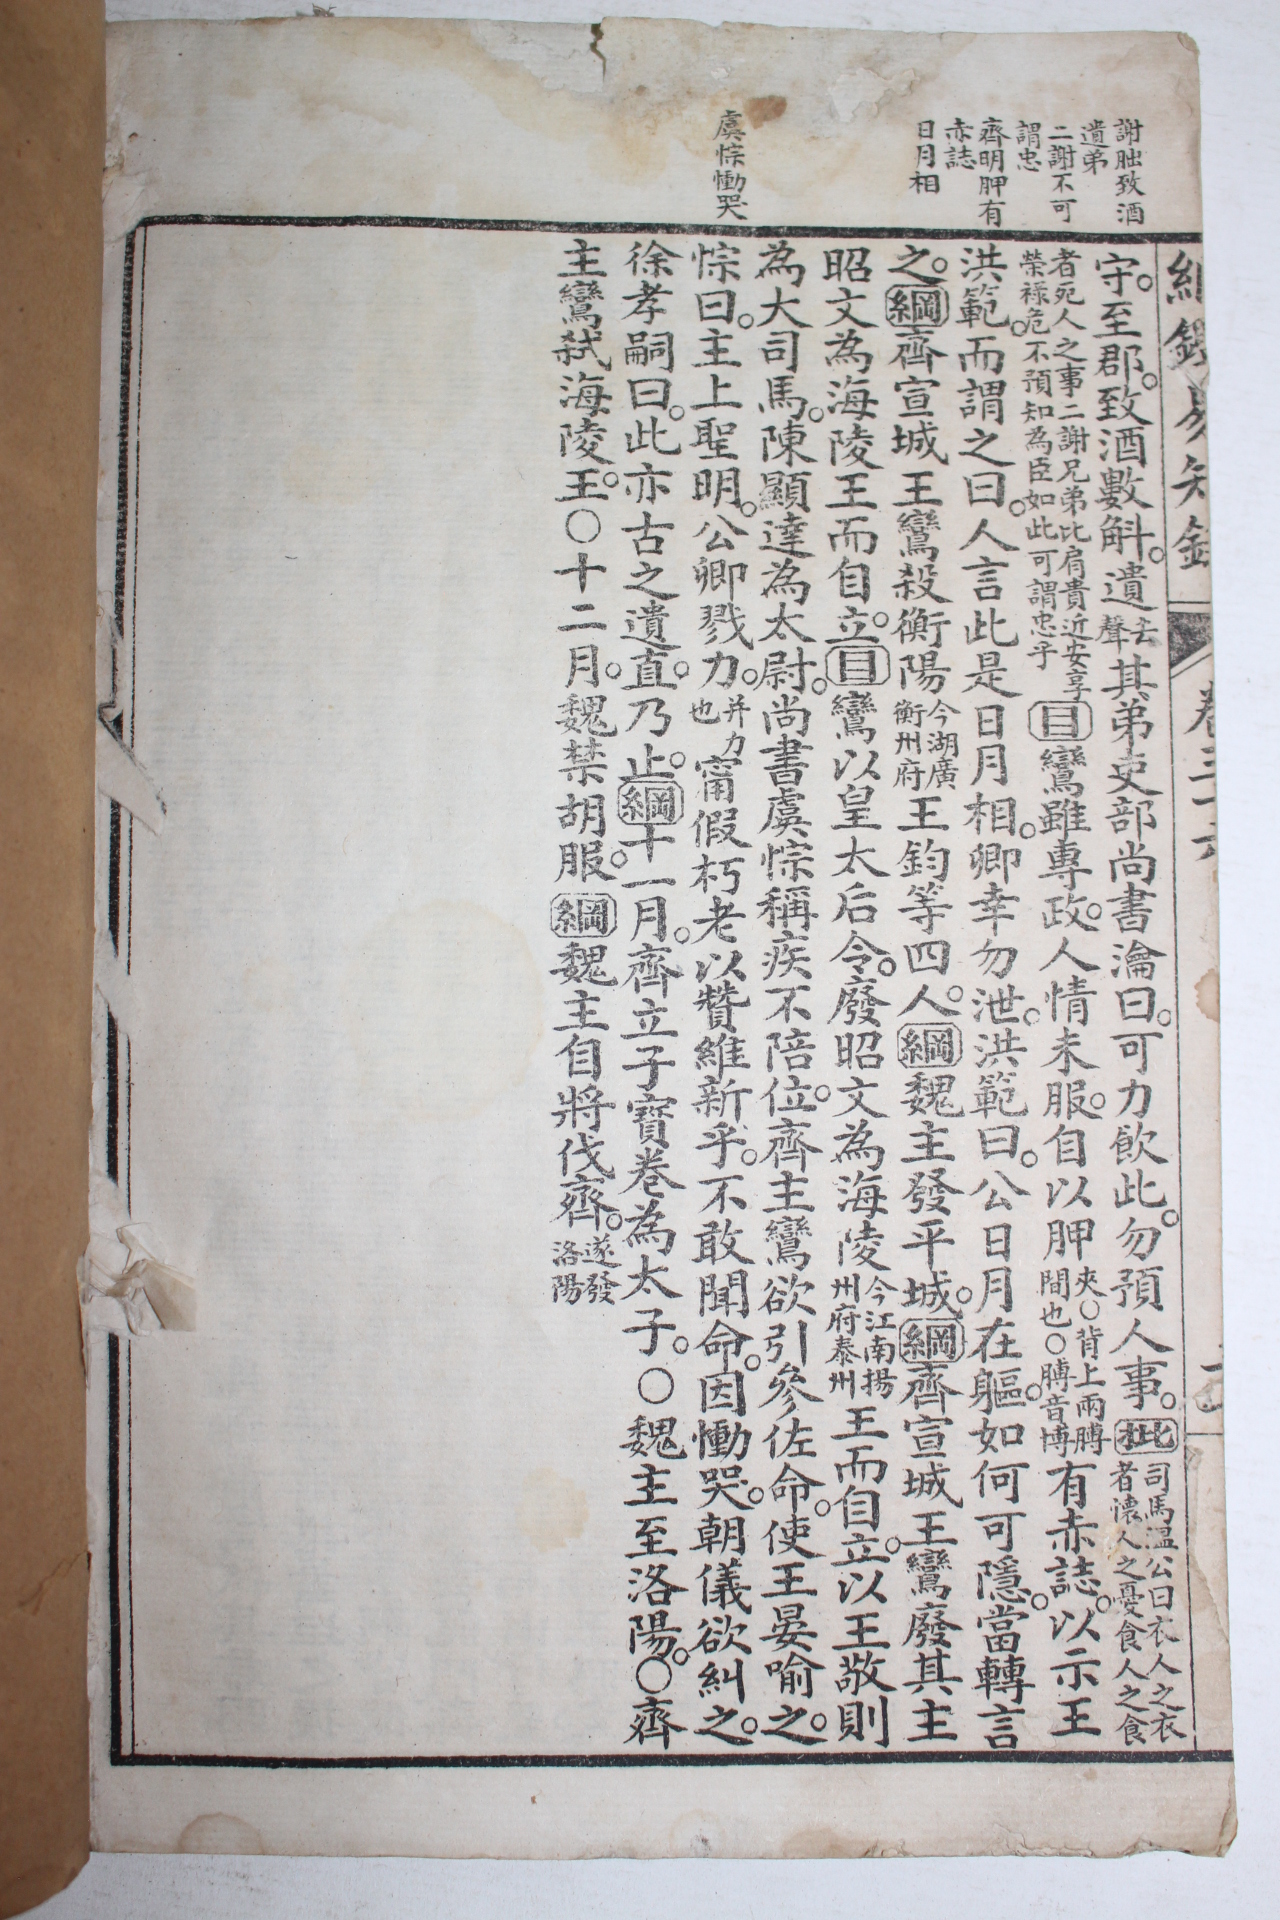 謝朏致酒
遺弟
二謝不可
謂忠
齊明胛有
赤誌
日月相
虞悰慟哭
綱鑑易知錄 卷三十六
守。至郡。致酒數斛。遺去聲其弟吏部尚書瀹曰。可力飲此。勿預人事。批司馬溫公曰衣人之衣者懷人之憂食人之食
者死人之事二謝兄弟比肩貴近安享榮祿危不預知為臣如此可謂忠乎目鸞雖專政。人情未服。自以胛夾○背上兩膊間也○膊音博有赤誌。以示王
洪範。而謂之曰。人言此是日月相。卿幸勿泄。洪範曰。公日月在軀。如何可隱。當轉言
之。綱齊宣城王鸞殺衡陽今湖廣衡州府王鈞等四人。綱魏主發平城。綱齊宣城王鸞廢其主
昭文為海陵王而自立。目鸞以皇太后令。廢昭文為海陵今江南揚州府泰州王而自立。以王敬則
為大司馬。陳顯達為太尉。尚書虞悰稱疾不陪位。齊主鸞欲引參佐命。使王晏喻之。
悰曰。主上聖明。公卿戮力。并力也甯假朽老以贊維新乎。不敢聞命。因慟哭。朝儀欲糾之。
徐孝嗣曰。此亦古之遺直。乃止。綱十一月。齊立子寶卷為太子。○魏主至洛陽。○齊
主鸞弒海陵王。○十二月。魏禁胡服。綱魏主自將伐齊。遂發洛陽